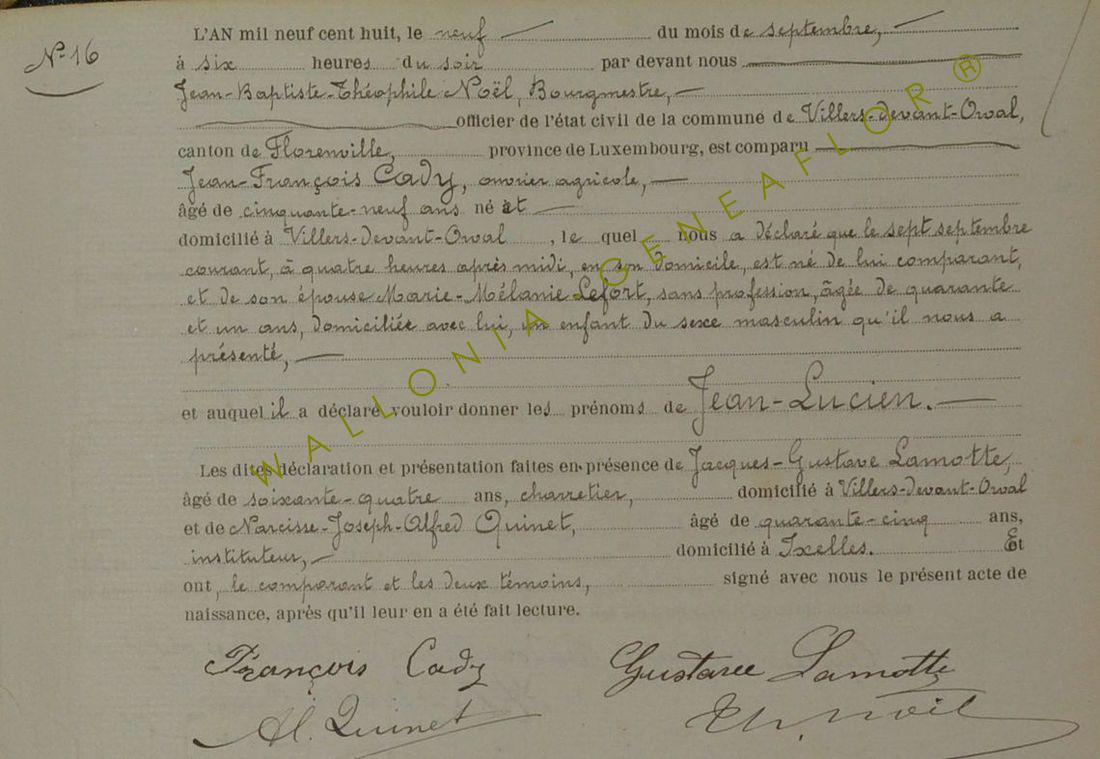 N° 16
L'AN mil neuf cent huit, le neuf — du mois de septembre, —
à six heures du soir par devant nous
Jean-Baptiste-Théophile Noël, Bourgmestre, —
officier de l'état civil de la commune de Villers-devant-Orval,
canton de Florenville, province de Luxembourg, est comparu
Jean-François Cady, ouvrier agricole, —
âgé de cinquante-neuf ans né et —
domicilié à Villers-devant-Orval, le quel nous a déclaré que le sept septembre
courant, à quatre heures après midi, en son domicile, est né de lui comparant,
et de son épouse Marie-Mélanie Lefort, sans profession, âgée de quarante
et un ans, domiciliée avec lui, un enfant du sexe masculin qu'il nous a
présenté, —
et auquel il a déclaré vouloir donner les prénoms de Jean-Lucien. —
Les dites déclaration et présentation faites en présence de Jacques-Gustave Lamotte,
âgé de soixante-quatre ans, charretier, domicilié à Villers-devant-Orval
et de Narcisse-Joseph-Alfred Quinet, âgé de quarante-cinq ans,
instituteur, — domicilié à Ixelles. Et
ont, le comparant et les deux témoins, signé avec nous le présent acte de
naissance, après qu'il leur en a été fait lecture.
François Cady Gustave Lamotte
Al. Quinet Th. Noël
WALLONIA GENEAFLOR ®